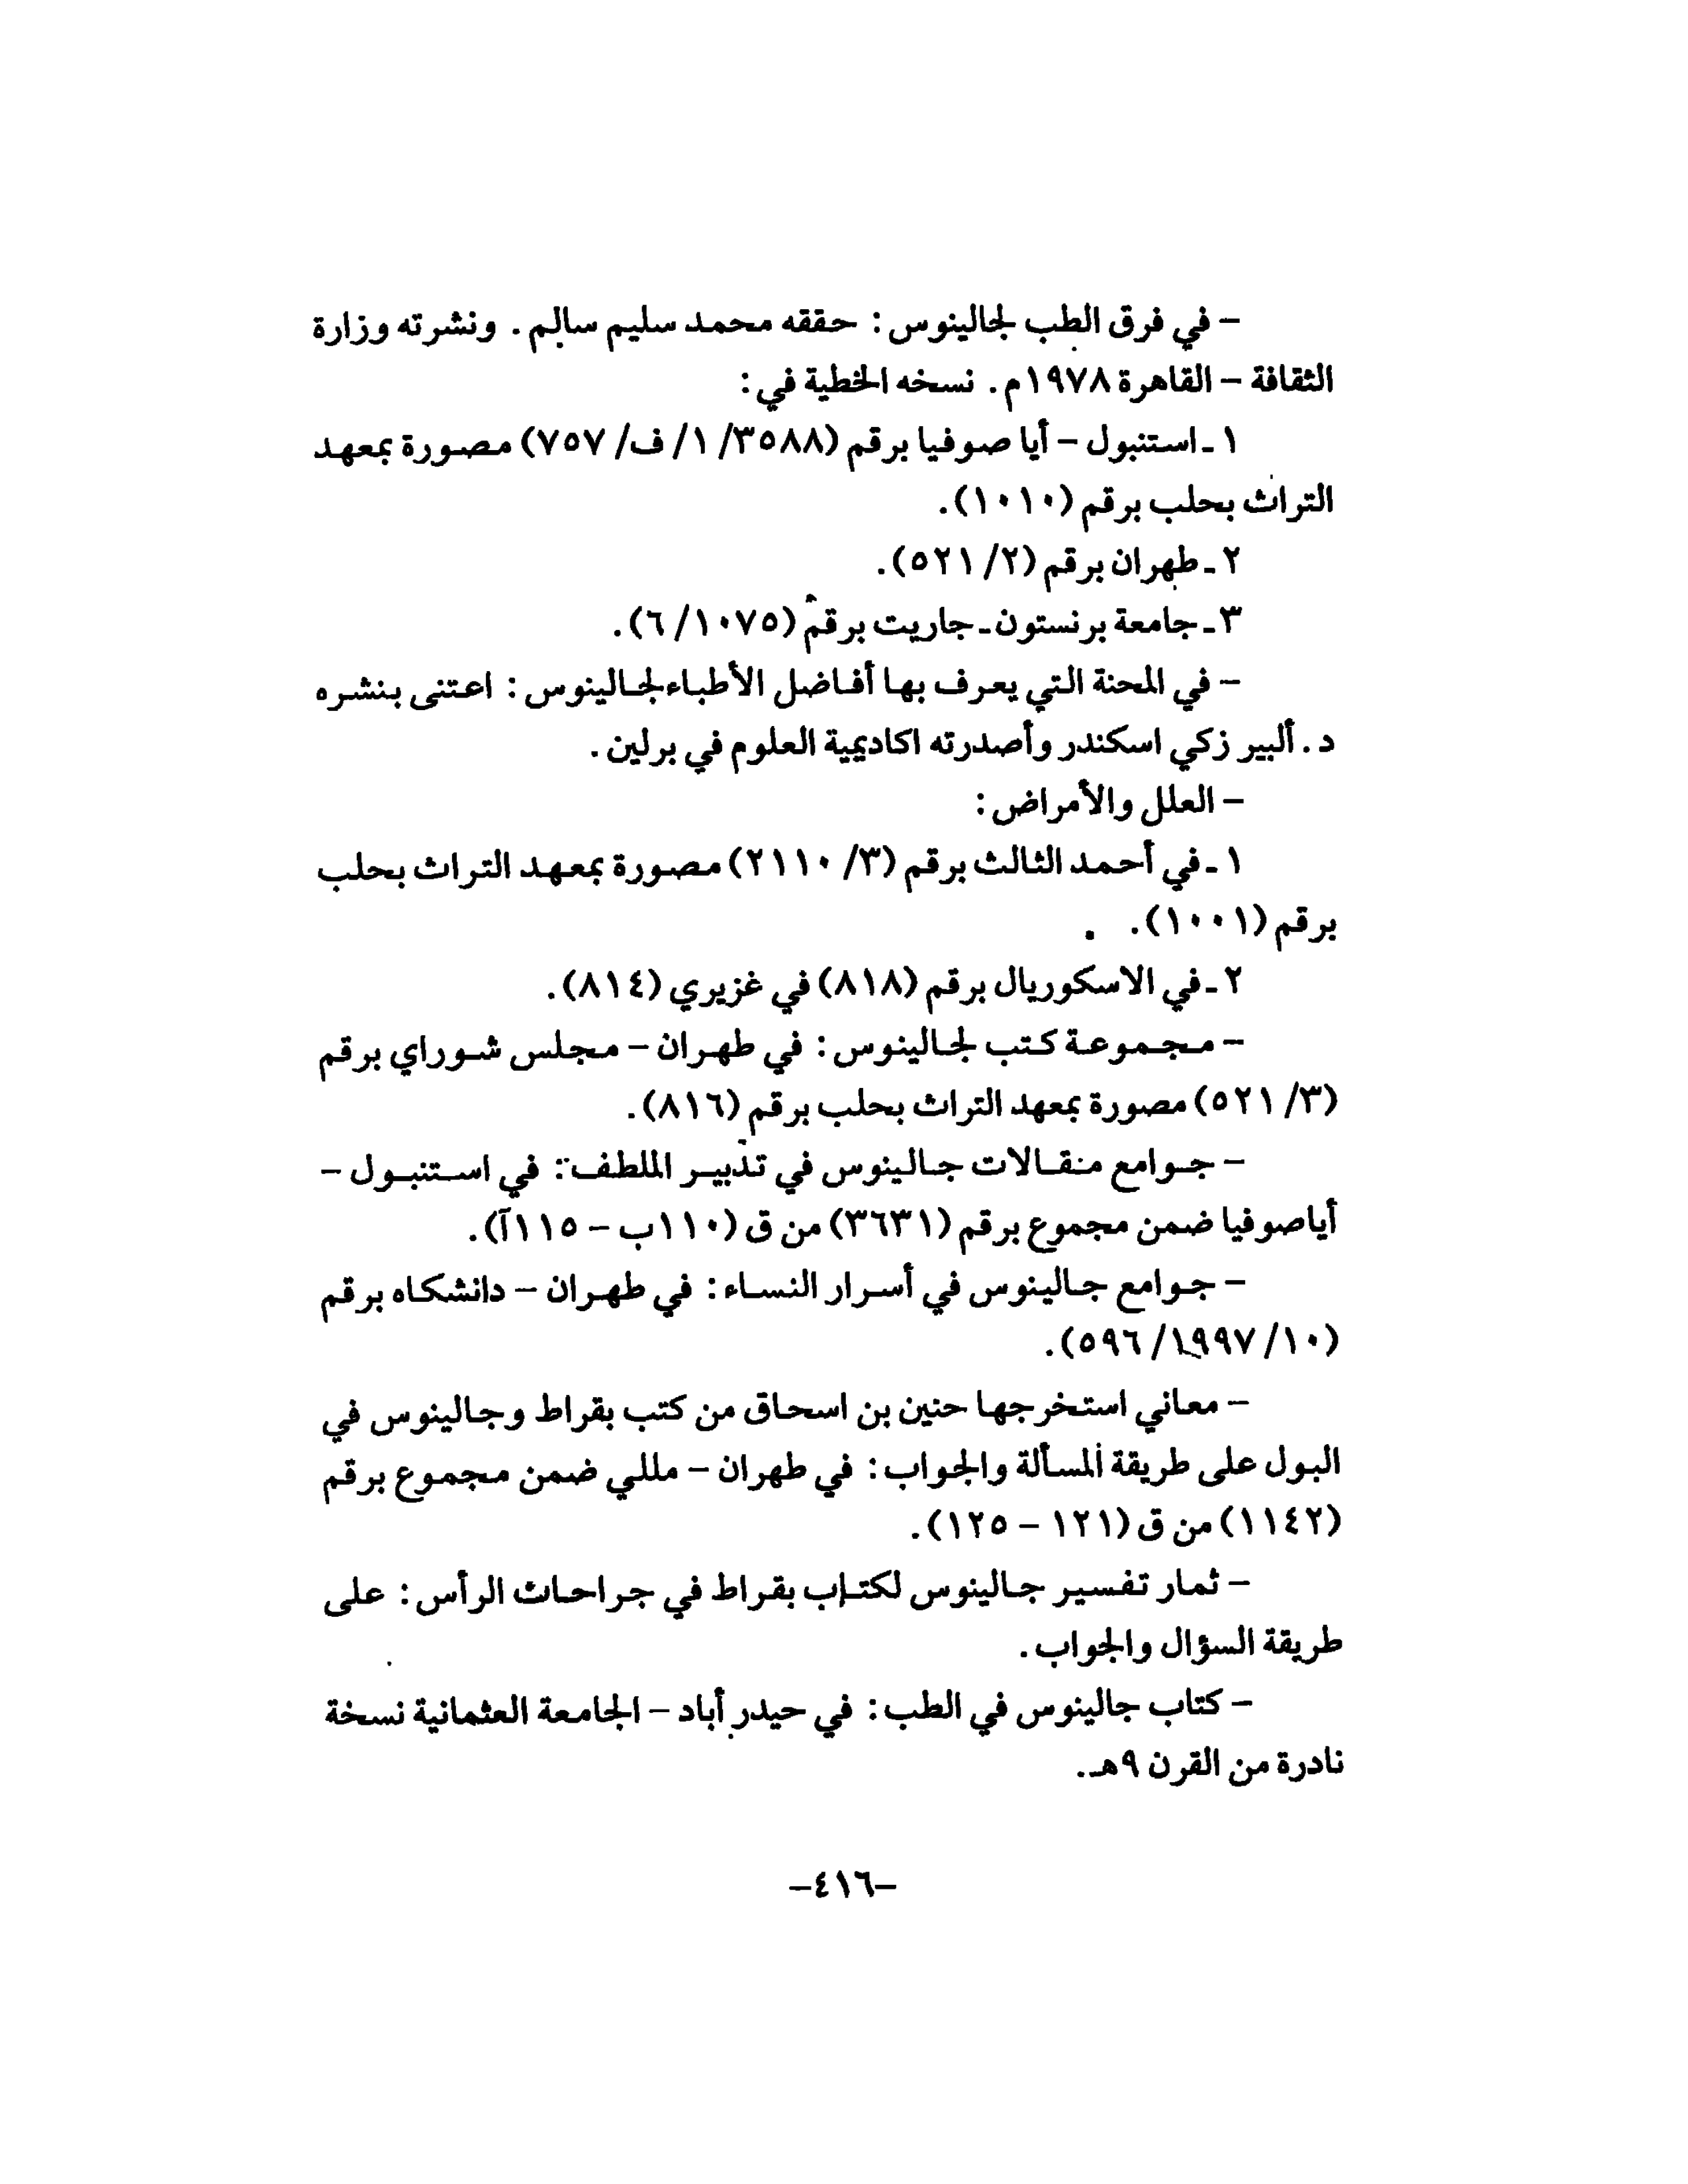 – في فرق الطب لجالينوس : حققه محمد سليم سالم . ونشرته وزارة
الثقافة – القاهرة ١٩٧٨م . نسخه الخطية في :
١ ـ استنبول – أيا صوفيا برقم (٣٥٨٨/ ١/ ف/ ٧٥٧) مصورة بمعهد
التراث بحلب برقم (١٠١٠) .
٢ ـ طهران برقم (٢/ ٥٢١) .
٣ ـ جامعة برنستون ـ جاريت برقم (١٠٧٥/ ٦) .
– في المحنة التي يعرف بها أفاضل الأطباء لجالينوس : اعتنى بنشره
د . ألبير زكي اسكندر وأصدرته اكاديمية العلوم في برلين .
– العلل والأمراض :
١ ـ في أحمد الثالث برقم (٣/ ٢١١٠) مصورة بمعهد التراث بحلب
برقم (١٠٠١) .
٢ ـ في الاسكوريال برقم (٨١٨) في غزيري (٨١٤) .
– مجموعة كتب لجالينوس : في طهران – مجلس شوراي برقم
(٣/ ٥٢١) مصورة بمعهد التراث بحلب برقم (٨١٦) .
– جوامع منقالات جالينوس في تدبير الملطف : في استنبول –
أياصوفيا ضمن مجموع برقم (٣٦٣١) من ق (١١٠ب – ١١٥آ) .
– جوامع جالينوس في أسرار النساء : في طهران – دانشكاه برقم
(١٠/ ١٩٩٧/ ٥٩٦) .
– معاني استخرجها حنين بن اسحاق من كتب بقراط وجالينوس في
البول على طريقة المسألة والجواب : في طهران – مللي ضمن مجموع برقم
(١١٤٢) من ق (١٢١ – ١٢٥) .
– ثمار تفسير جالينوس لكتاب بقراط في جراحات الرأس : على
طريقة السؤال والجواب .
– كتاب جالينوس في الطب : في حيدر أباد – الجامعة العثمانية نسخة
نادرة من القرن ٩هـ .
–٤١٦–